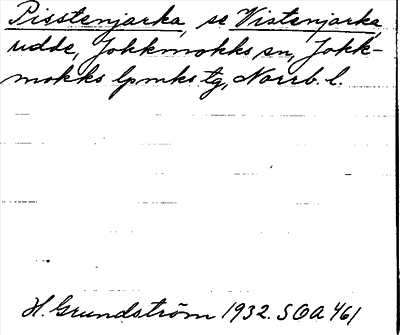 Pisstenjarka, se Vistenjarka,
udde, Jokkmokks sn, Jokk-
mokks lpmks tg, Norrb. l.
H. Grundström 1932. SOA 461